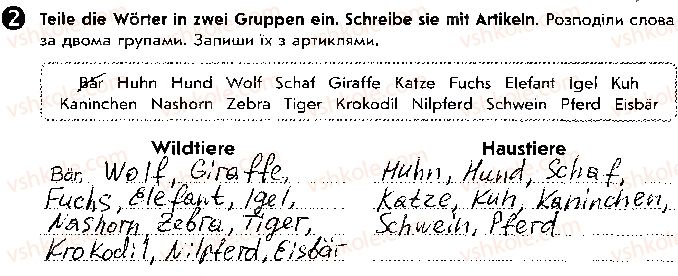 2 Teile die Wörter in zwei Gruppen ein. Schreibe sie mit Artikeln. Розподіли слова
за двома групами. Запиши їх з артиклями.
Bär Huhn Hund Wolf Schaf Giraffe Katze Fuchs Elefant Igel Kuh
Kaninchen Nashorn Zebra Tiger Krokodil Nilpferd Schwein Pferd Eisbär
Wildtiere
Bär, Wolf, Giraffe,
Fuchs, Elefant, Igel,
Nashorn, Zebra, Tiger,
Krokodil, Nilpferd, Eisbär
Haustiere
Huhn, Hund, Schaf,
Katze, Kuh, Kaninchen,
Schwein, Pferd